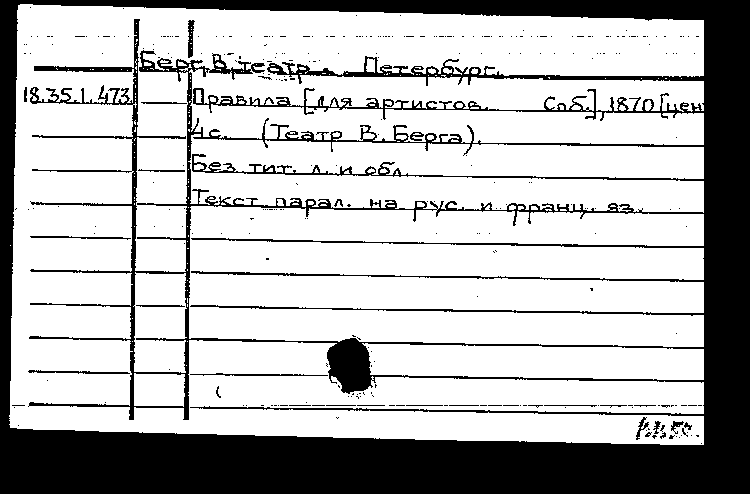 Берг, В, театр. Петербург.
18.35.1.473 Правила [для артистов. Спб.], 1870 [цен
4с. (Театр В. Берга).
Без тит. л. и обл.
Текст парал. на рус. и франц. яз.